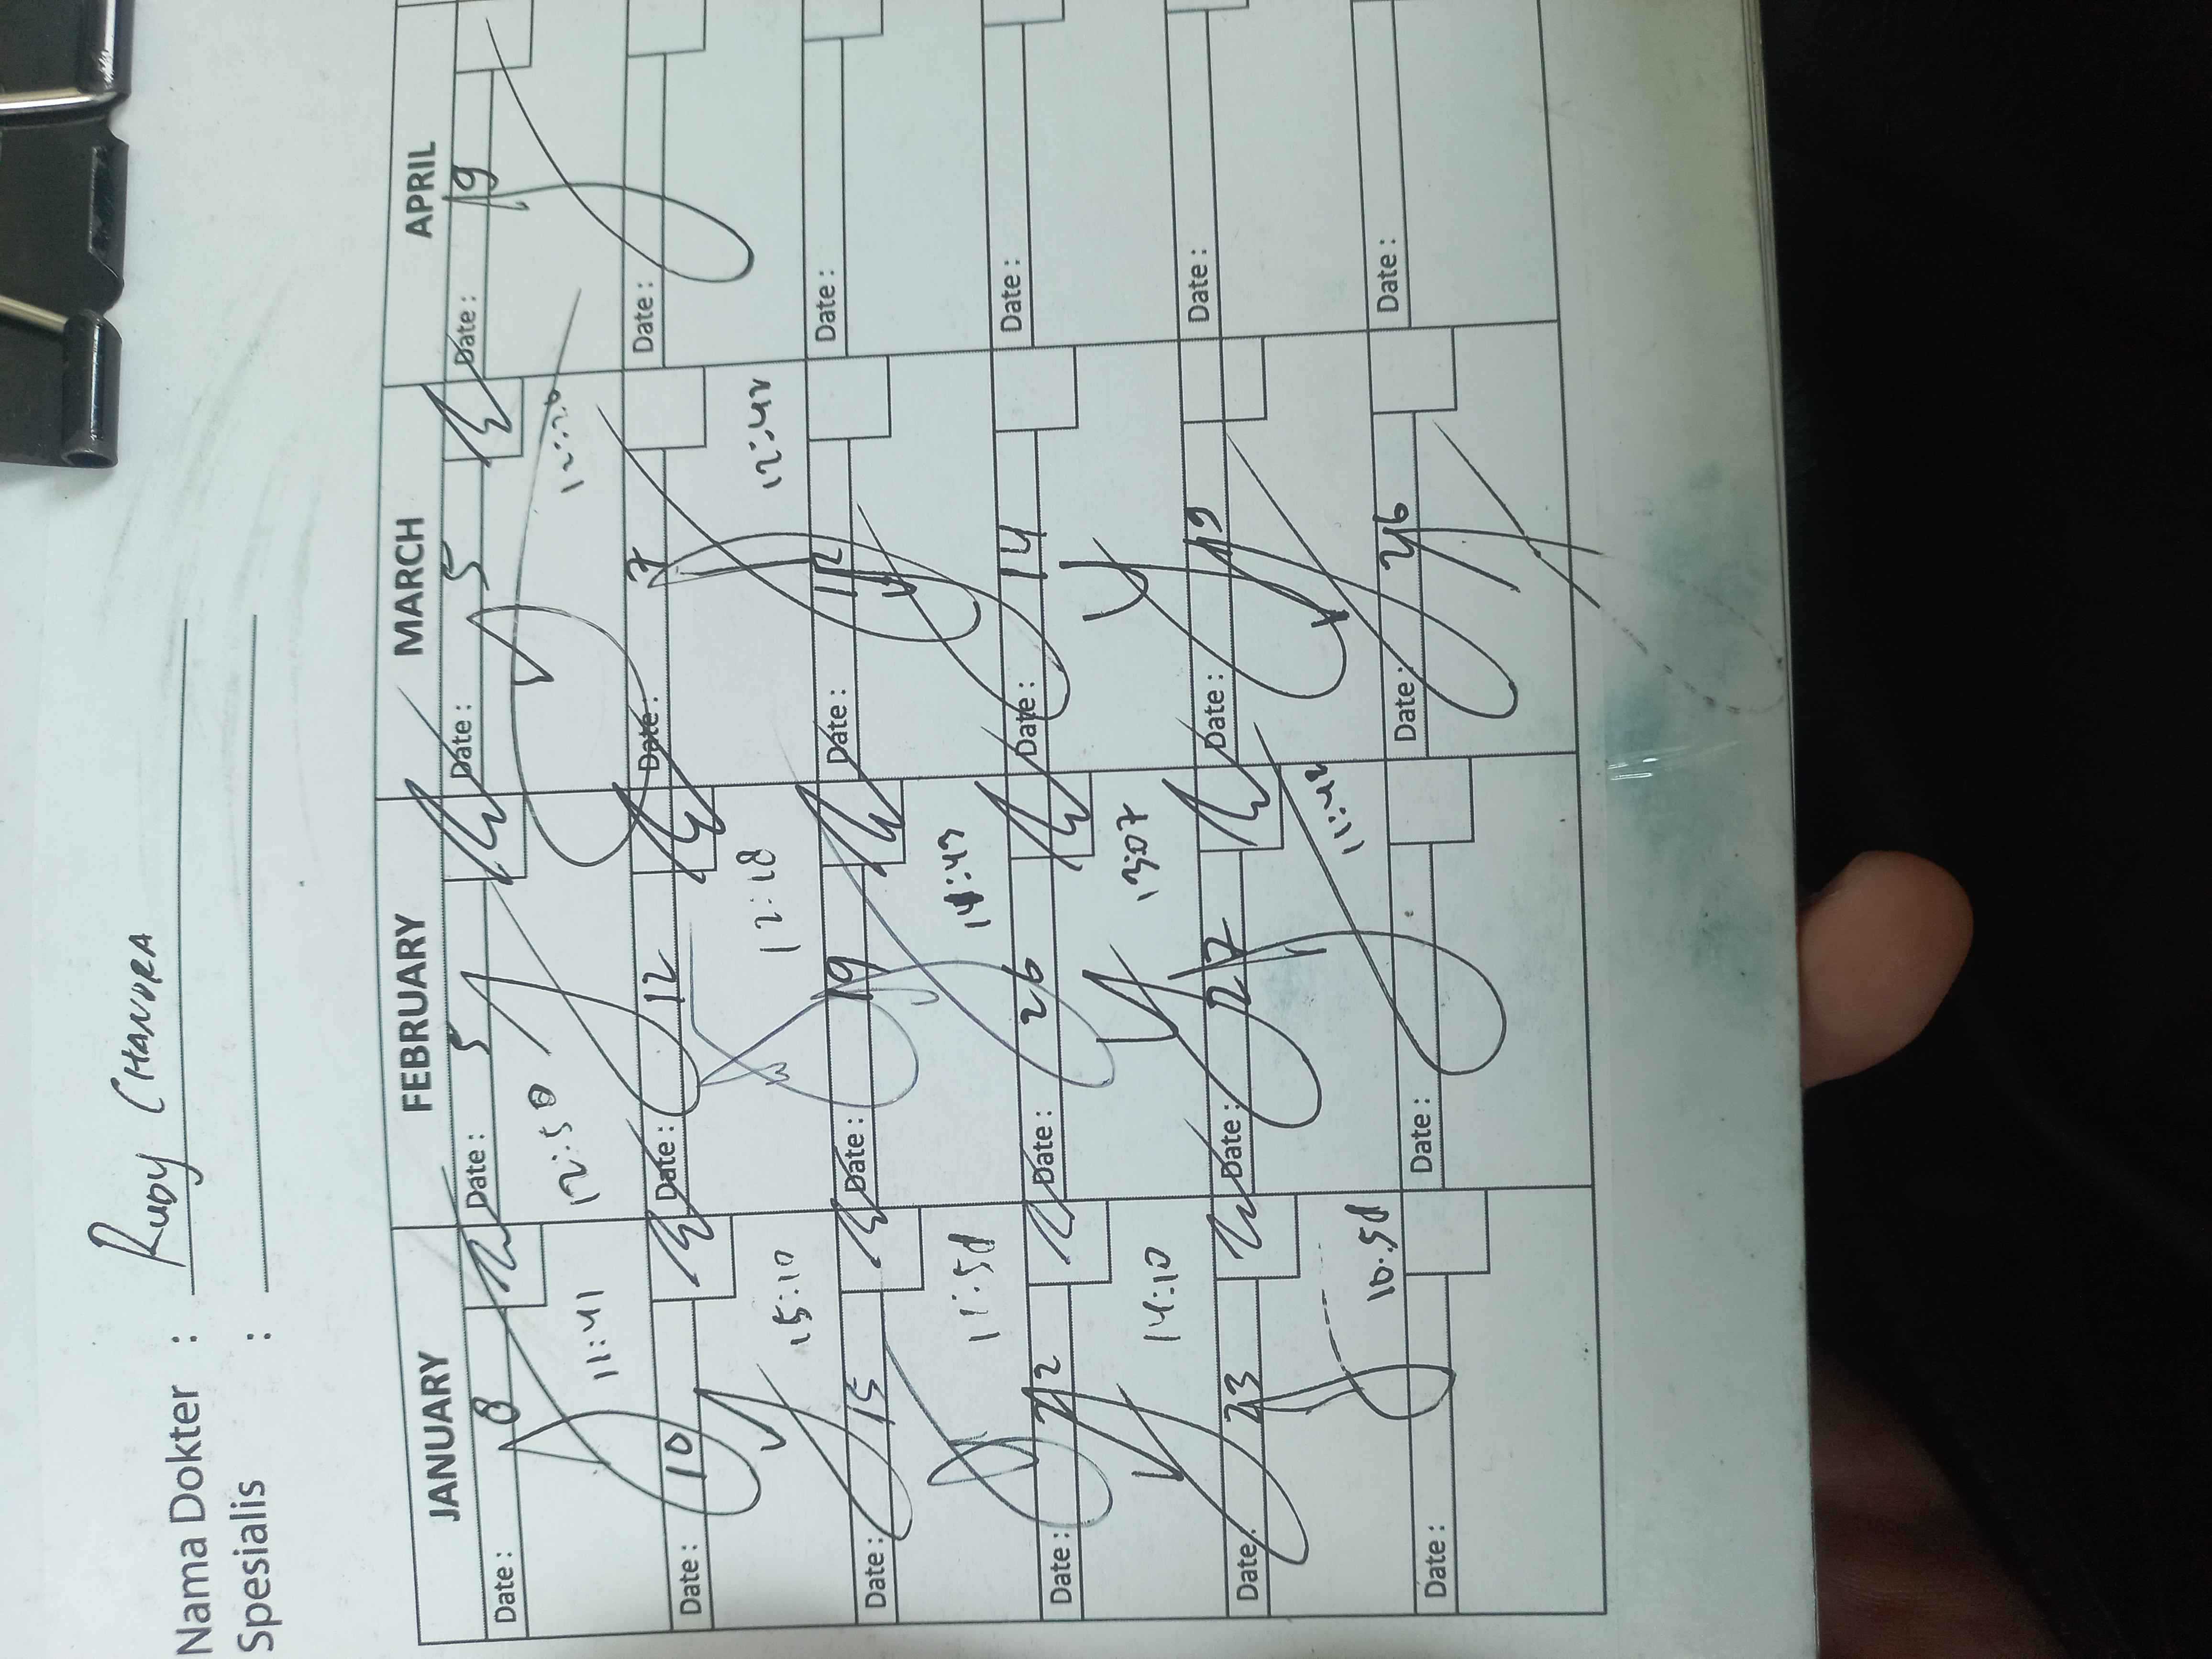 Nama Dokter : RUDY CHANDRA
Spesialis :
JANUARY FEBRUARY MARCH APRIL
Date : 8 Date : 5 Date : 5 Date : 19
11:41 12:58
Date : 10 Date : 12 Date : 7 Date :
15:10 12:18 12:42
Date : 15 Date : 19 Date : 12 Date :
11:51 14:49
Date : 22 Date : 26 Date : 14 Date :
14:10 13:07
Date : 23 Date : 27 Date : 19 Date :
10.51 11:42
Date : Date : Date : 26 Date :